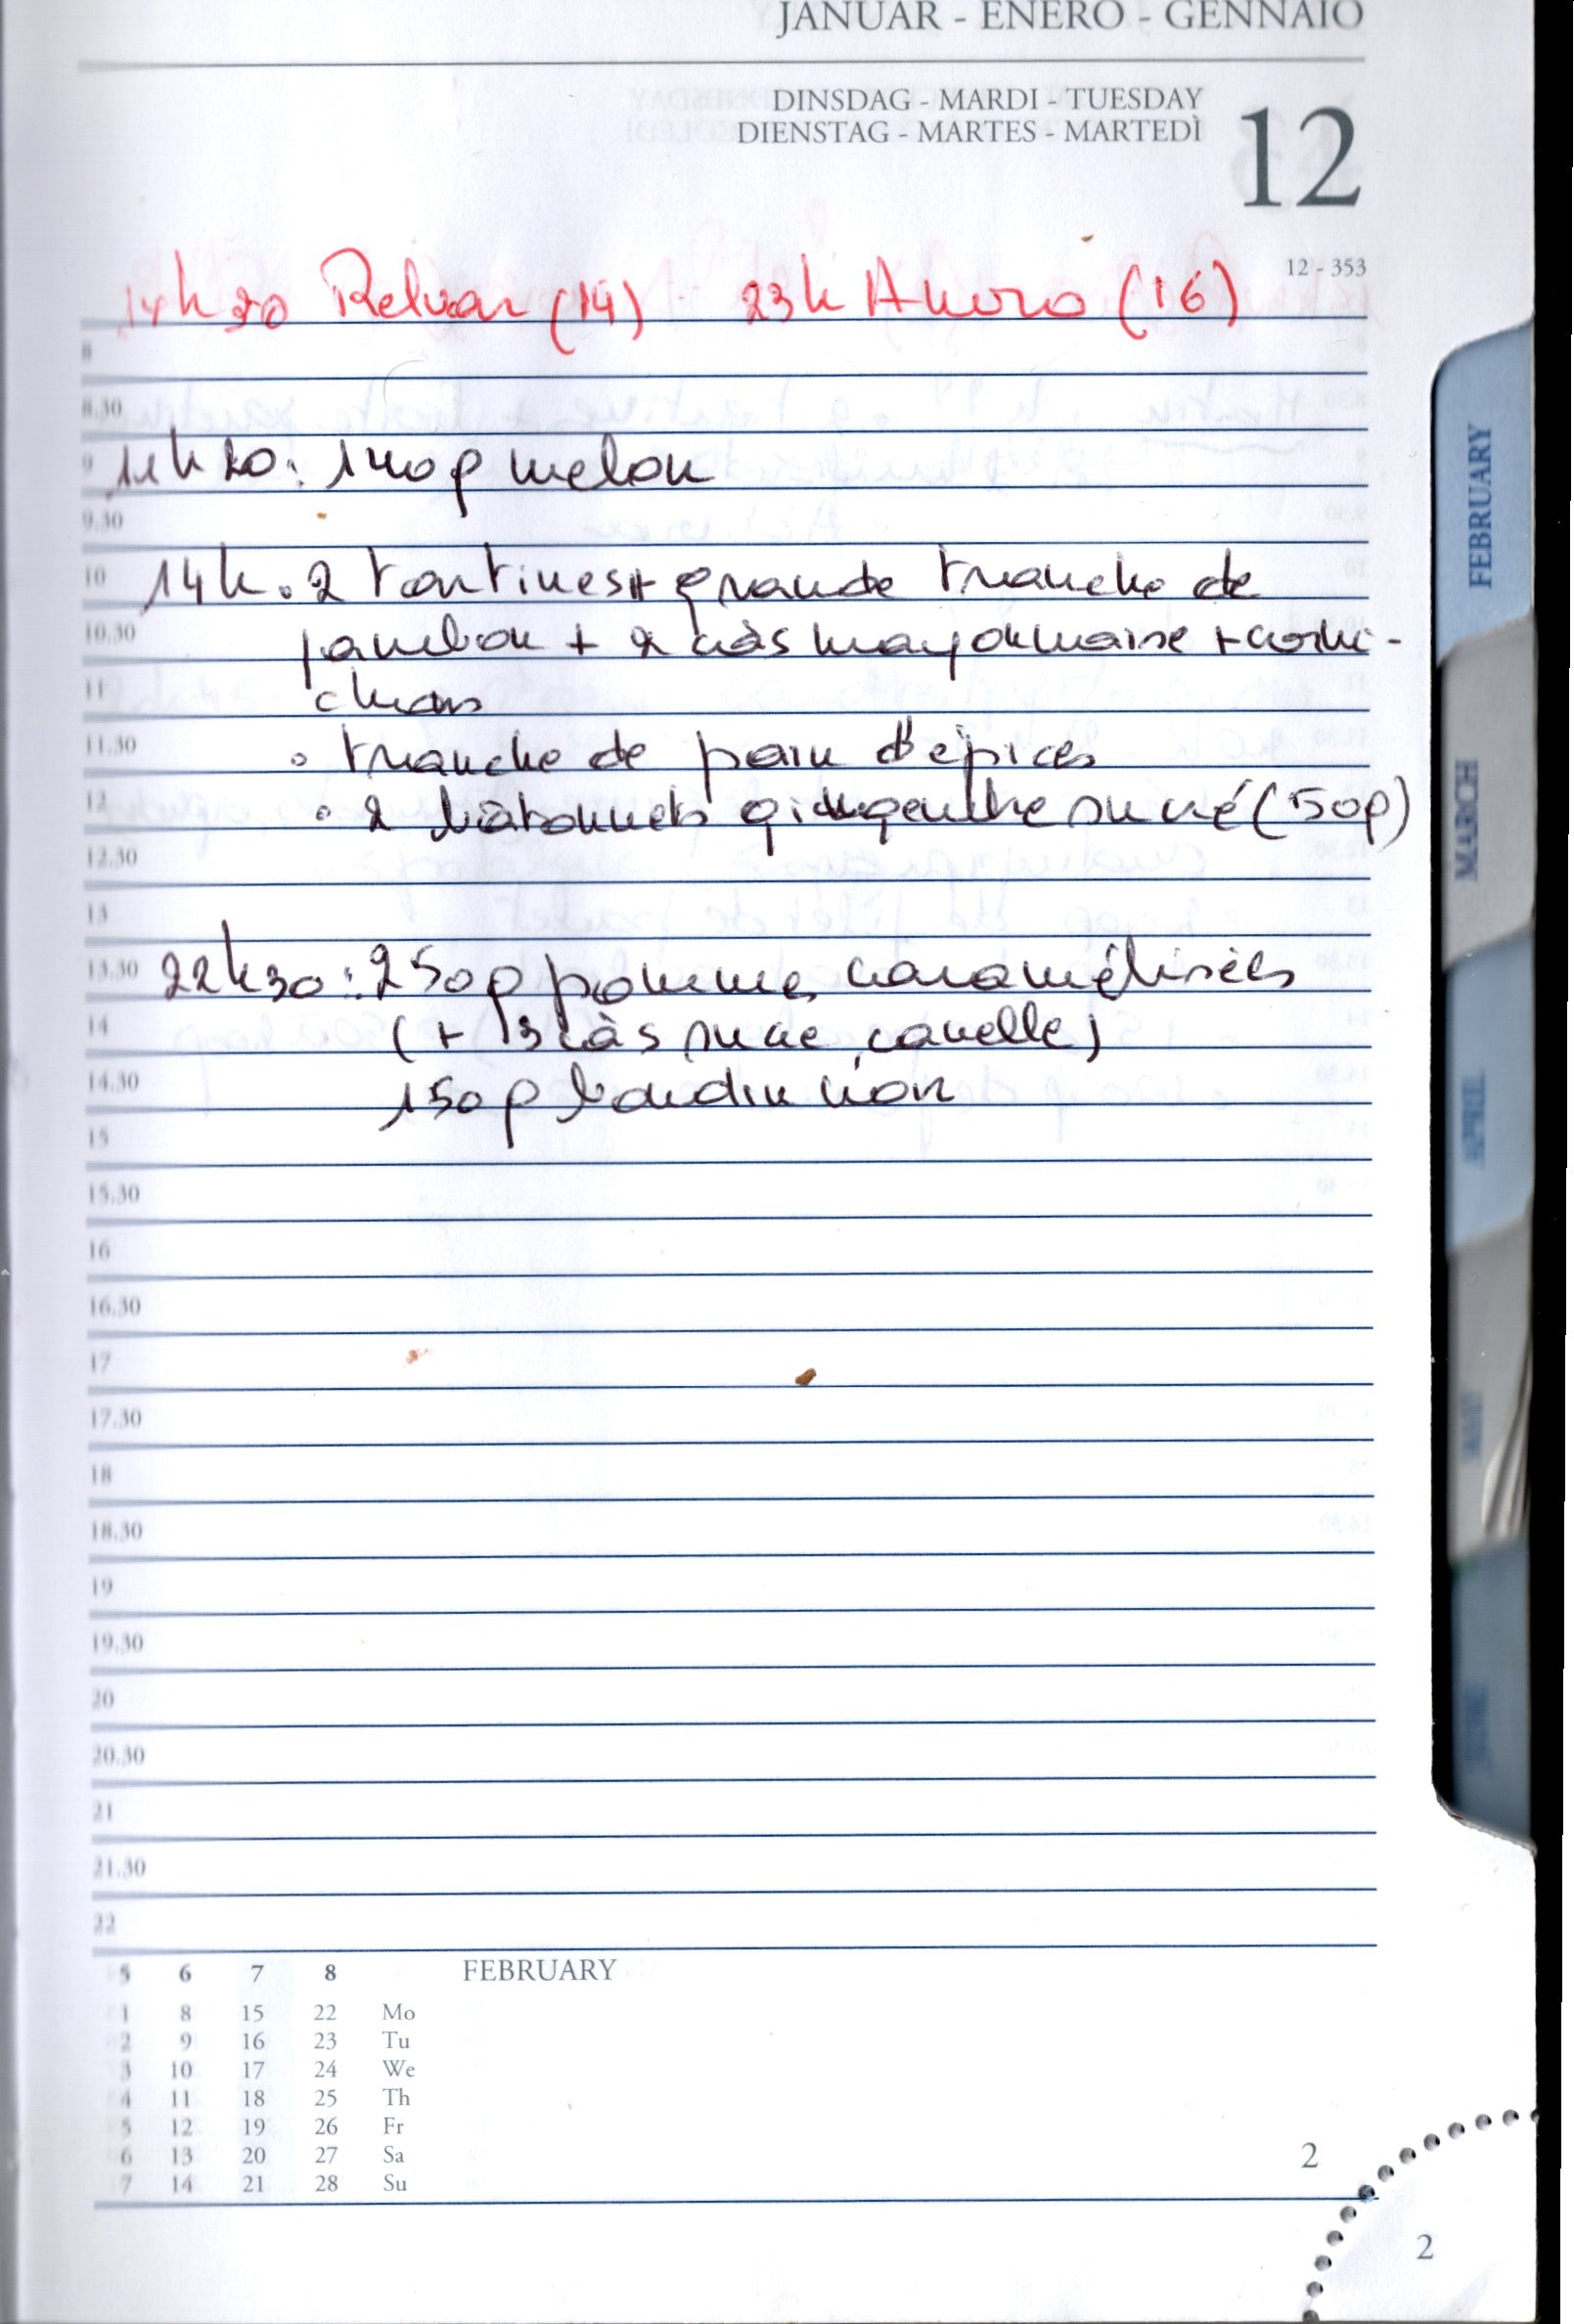 JANUAR - ENERO - GENNAIO
DINSDAG - MARDI - TUESDAY
DIENSTAG - MARTES - MARTEDÌ
12
12 - 353
14h30 Relvar (14) - 23h Anoro (16)
8
8.30
9
11h20: 140g melon
9.30
10
14h. 2 tartines + grande tranche de
10.30
jambon + 2 càs mayonnaise + corni-
11
chons
11.30
• tranche de pain d'épices
12
• 2 bâtonnets gingembre sucré (50g)
12.30
13
13.30
22h30: 250g pommes caramélisées
14
(+ 3 càs sucre, canelle)
14.30
150g boudin noir
15
15.30
16
16.30
17
17.30
18
18.30
19
19.30
20
20.30
21
21.30
22
5 6 7 8 FEBRUARY
1 8 15 22 Mo
2 9 16 23 Tu
3 10 17 24 We
4 11 18 25 Th
5 12 19 26 Fr
6 13 20 27 Sa
7 14 21 28 Su
2
2
FEBRUARY
MARCH
APRIL
MAY
JUNE